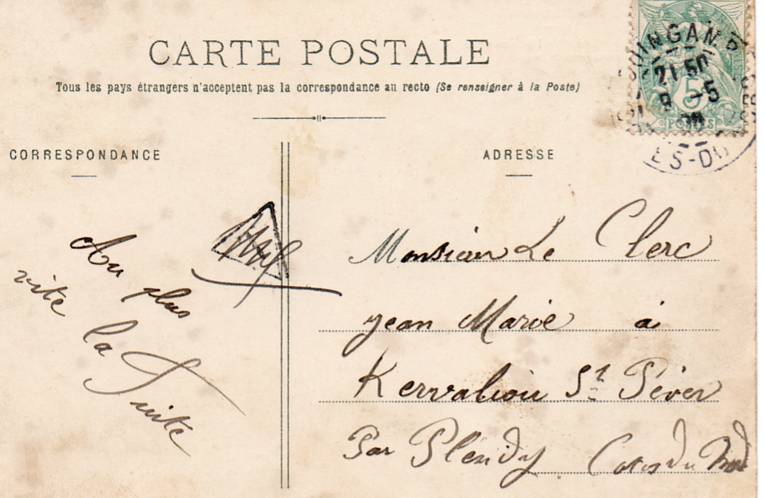 CARTE POSTALE
Tous les pays étrangers n'acceptent pas la correspondance au recto (Se renseigner à la Poste)
CORRESPONDANCE
ADRESSE
GUINGAMP
21 50
8 -5
5
ES-DU
Au plus
vite la Suite
Monsieur Le Clerc
jean Marie à
St Péver
Par Plesidy Cotes du Nord